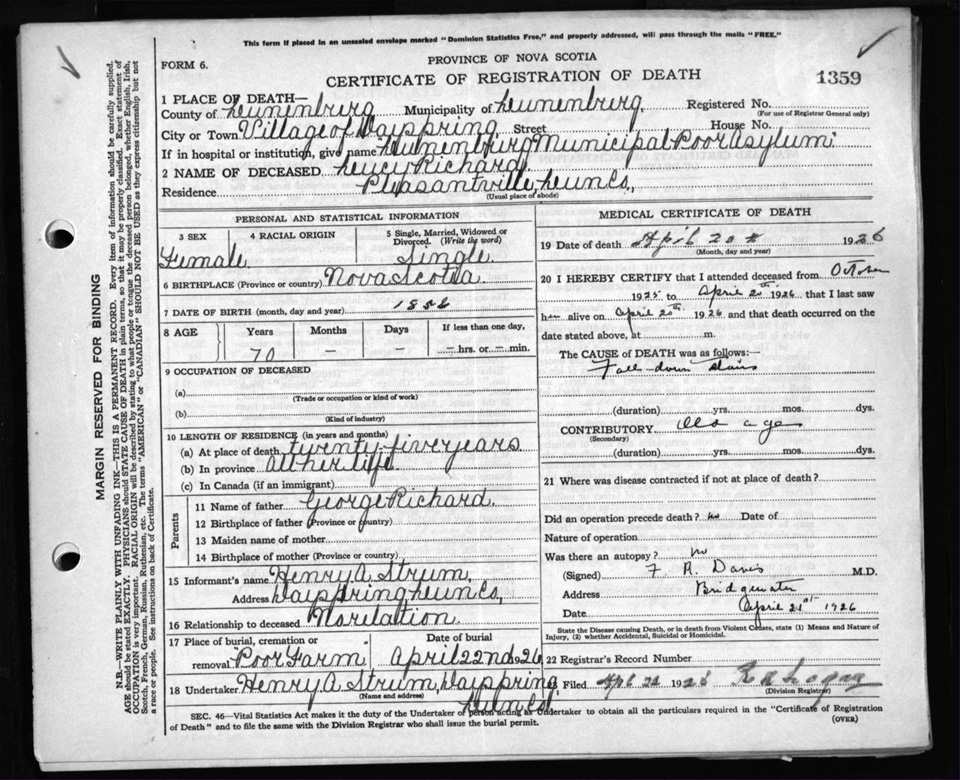 This form if placed in an unsealed envelope marked "Dominion Statistics Free," and properly addressed, will pass through the mails "FREE."
FORM 6.
PROVINCE OF NOVA SCOTIA
CERTIFICATE OF REGISTRATION OF DEATH
1359
1 PLACE OF DEATH—
County of Lunenburg Municipality of Lunenburg, Registered No.
(For use of Registrar General only)
City or Town Village of Dayspring, Street House No.
If in hospital or institution, give name Lunenburg Municipal Poor Asylum
2 NAME OF DECEASED Lucy Richard
Residence Pleasantville, Lun Co,
(Usual place of abode)
PERSONAL AND STATISTICAL INFORMATION
3 SEX 4 RACIAL ORIGIN 5 Single, Married, Widowed or Divorced. (Write the word)
Female Single
6 BIRTHPLACE (Province or country) Nova Scotia
7 DATE OF BIRTH (month, day and year)
8 AGE Years Months Days If less than one day,
70 — — — hrs. or — min.
9 OCCUPATION OF DECEASED
(a)
(Trade or occupation or kind of work)
(b)
(Kind of industry)
10 LENGTH OF RESIDENCE (in years and months)
(a) At place of death twenty-five years
(b) In province all her life
(c) In Canada (if an immigrant)
Parents
11 Name of father George Richard
12 Birthplace of father (Province or country)
13 Maiden name of mother
14 Birthplace of mother (Province or country)
15 Informant's name Henry A. Strum,
Address Dayspring Lun Co,
16 Relationship to deceased No relation
17 Place of burial, cremation or Date of burial
removal "Poor Farm" April 22nd 1926
18 Undertaker Henry A. Strum, Dayspring,
(Name and address) Lun Co,
MEDICAL CERTIFICATE OF DEATH
19 Date of death April 20th 1926
(Month, day and year)
20 I HEREBY CERTIFY that I attended deceased from October
1925 to April 20th 1926 that I last saw
her alive on April 20th 1926 and that death occurred on the
date stated above, at m.
The CAUSE OF DEATH was as follows:—
Fall down stairs
(duration) yrs. mos. dys.
CONTRIBUTORY Old age
(Secondary)
(duration) yrs. mos. dys.
21 Where was disease contracted if not at place of death?
Did an operation precede death? no Date of
Nature of operation
Was there an autopsy? no
(Signed) F. R. Davis M.D.
Address Bridgewater
Date April 21st 1926
State the Disease causing Death, or in death from Violent Causes, state (1) Means and Nature of
Injury, (2) whether Accidental, Suicidal or Homicidal.
22 Registrar's Record Number
Filed Apl 22 1926
(Division Registrar)
SEC. 46—Vital Statistics Act makes it the duty of the Undertaker or person acting as Undertaker to obtain all the particulars required in the "Certificate of Registration
of Death" and to file the same with the Division Registrar who shall issue the burial permit. (OVER)
MARGIN RESERVED FOR BINDING
N.B.—WRITE PLAINLY WITH UNFADING INK—THIS IS A PERMANENT RECORD. Every item of information should be carefully supplied.
AGE should be stated EXACTLY. PHYSICIANS should STATE CAUSE OF DEATH in plain terms, so that it may be properly classified. Exact statement of
OCCUPATION is very important. RACIAL ORIGIN will be described by stating to what people or tongue the deceased person belonged, whether English, Irish,
Scotch, French, German, Russian, Ruthenian, etc. The terms "AMERICAN" or "CANADIAN" SHOULD NOT BE USED as they express citizenship but not
a race or people. See instructions on back of Certificate.